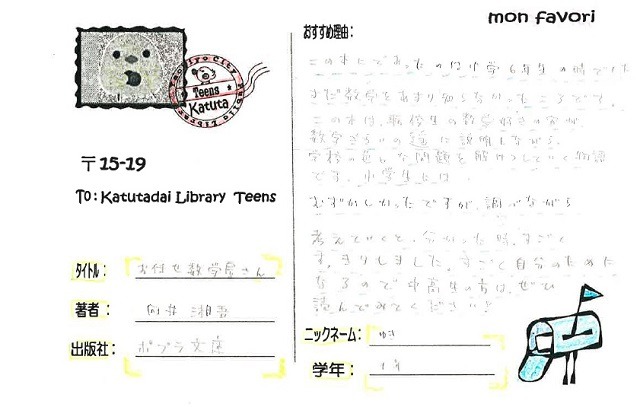 mon favori
おすすめ理由：
この本にであったのは小学6年生の時でした
まだ数学をあまり知らなかったころです。
この本は、転校生の数学好きの子が
数学ぎらいの
に説明しながら、
学校の
な問題を解
していく物語
です。小学生には、
むずかしかったですが、調べながら
考えていくと、分かった時、すごく
すっきりしました。すごく自分のためになるので中高生の方は、ぜひ
読んでみてください♪
Yachiyo City Public Library
Teens
Katuta
〒15-19
To: Katutadai Library Teens
タイトル：お任せ 数学屋さん
著者：向井 湘吾
出版社：ポプラ文庫
ニックネーム：ゆき
学年：